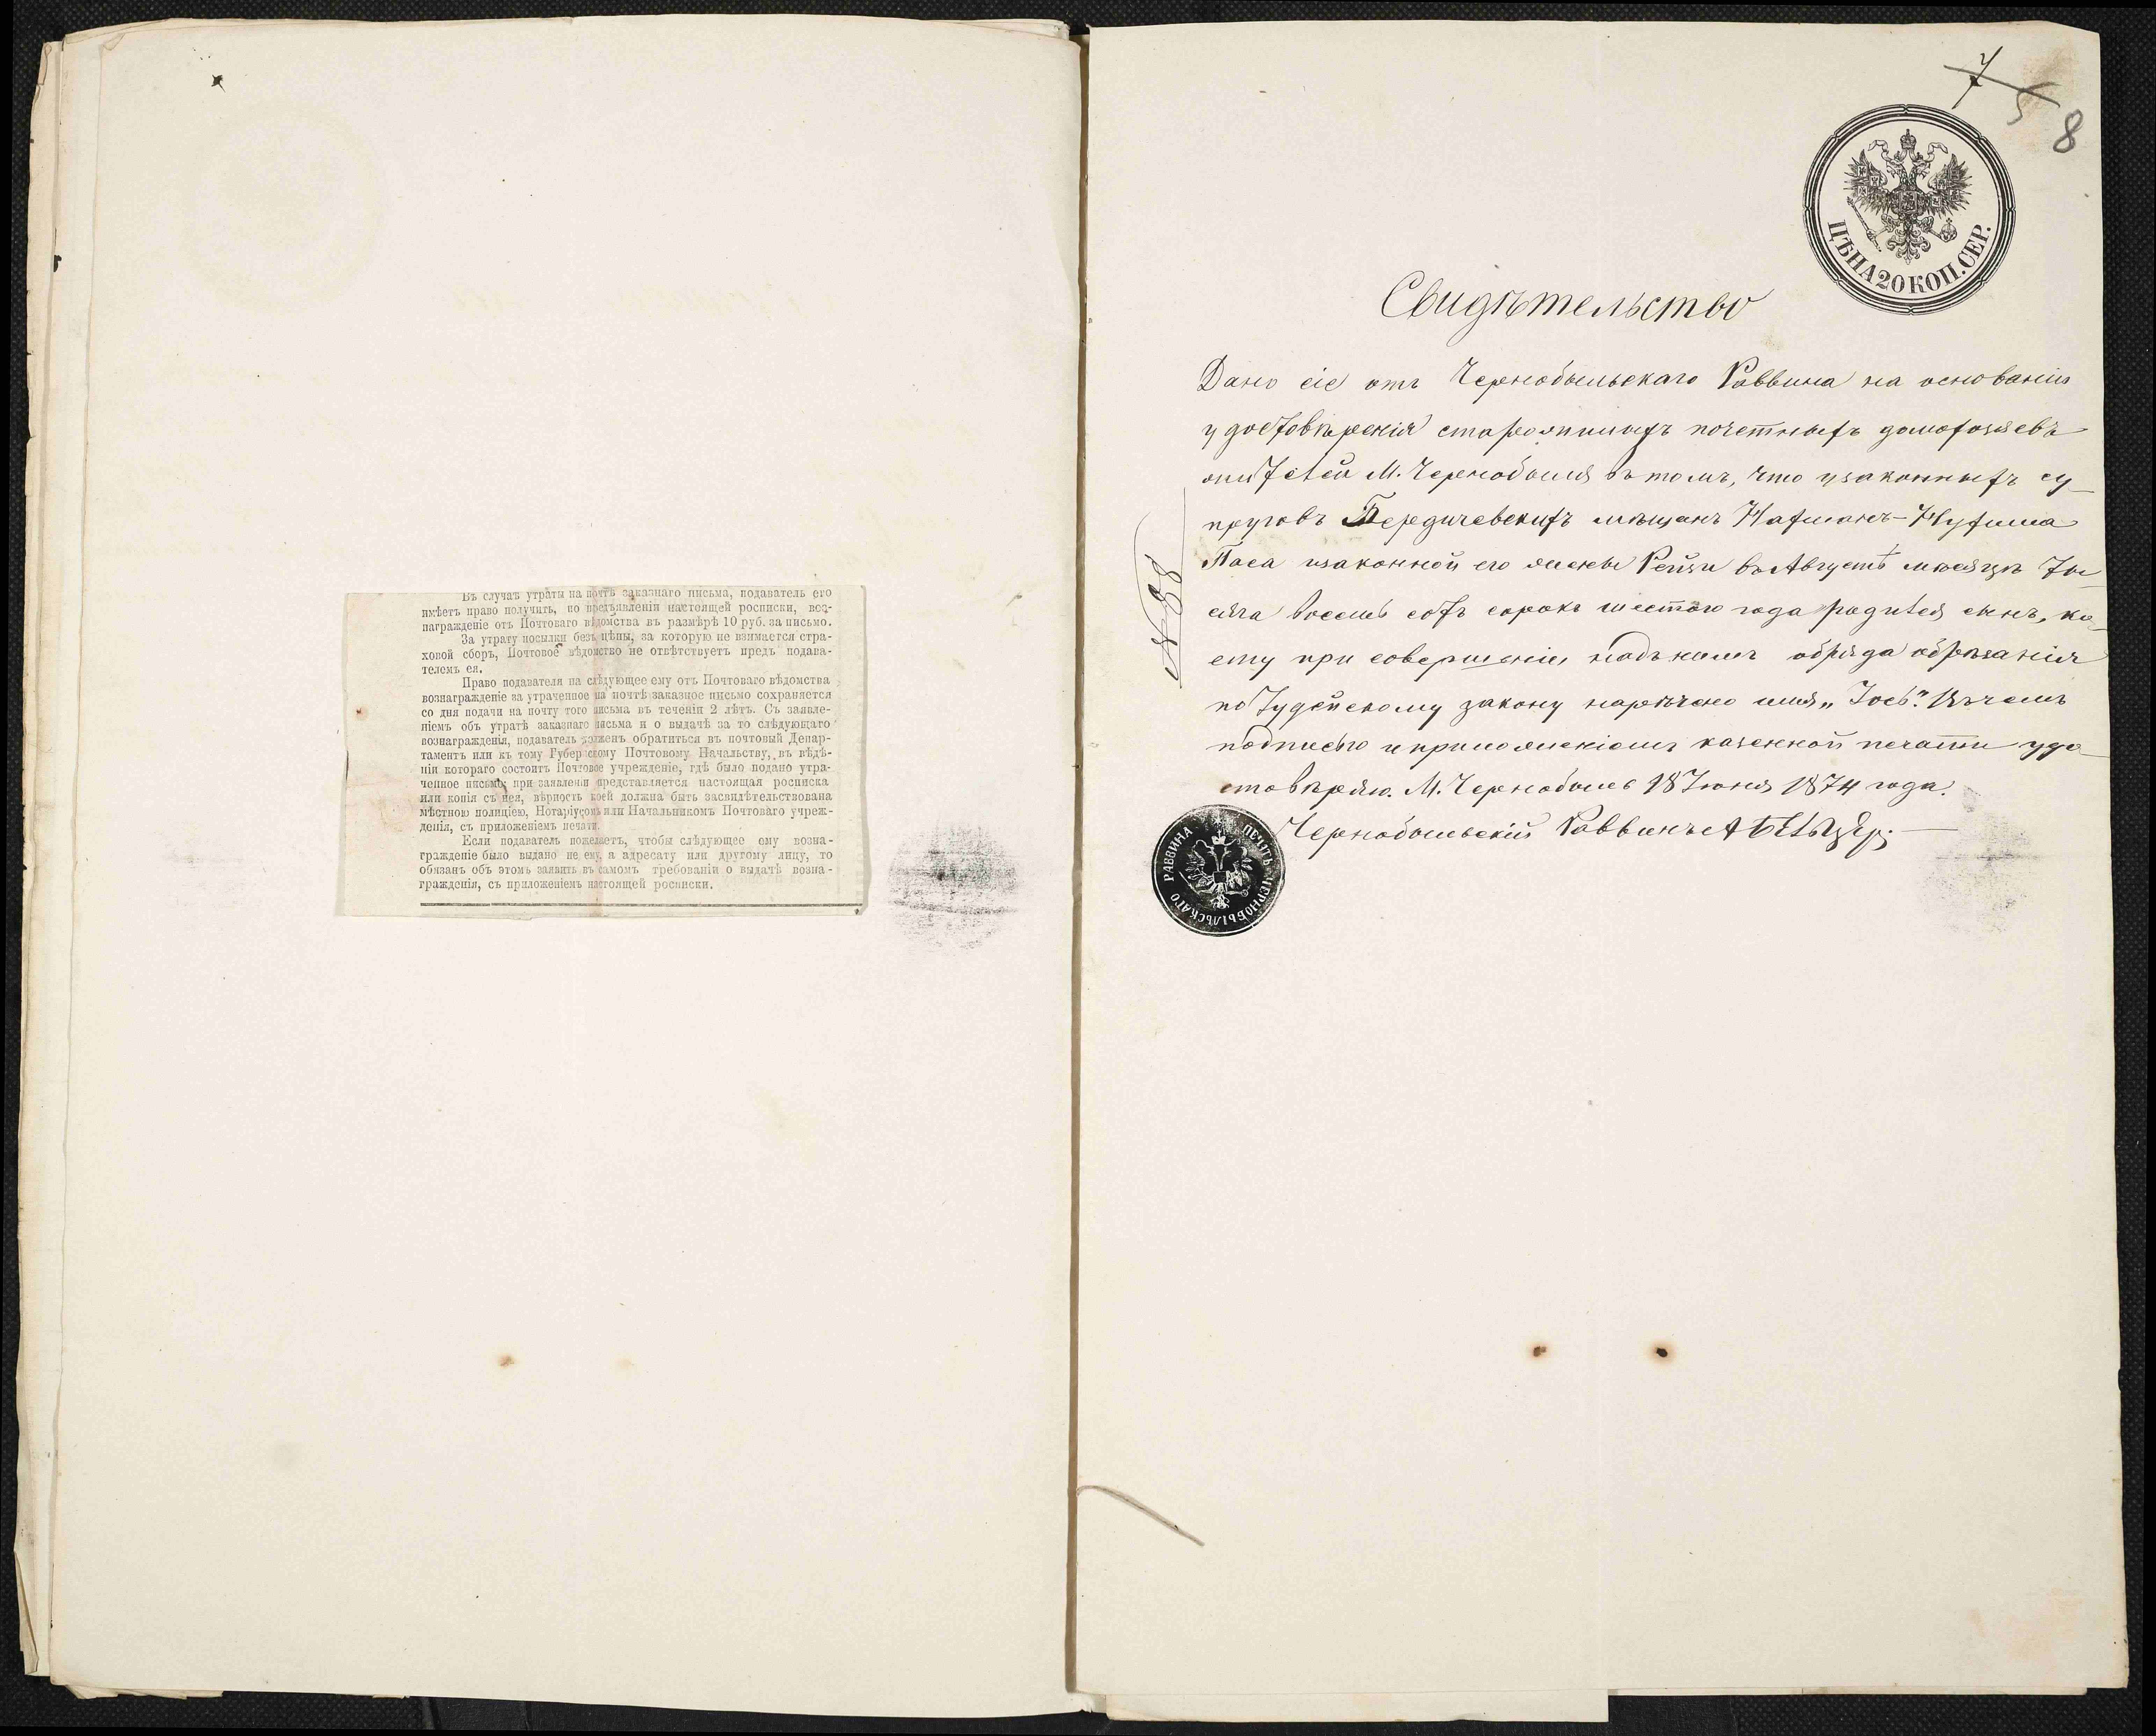 Въ случаѣ утраты на почтѣ заказнаго письма, подаватель его
имѣетъ право получить, по предъявленіи настоящей росписки, воз-
награжденіе отъ Почтоваго вѣдомства въ размѣрѣ 10 руб. за письмо.
За утрату посылки безъ цѣны, за которую не взимается стра-
ховой сборъ, Почтовое вѣдомство не отвѣтствуетъ предъ подава-
телемъ ея.
Право подавателя на слѣдующее ему отъ Почтоваго вѣдомства
вознагражденіе за утраченное на почтѣ заказное письмо сохраняется
со дня подачи на почту того письма въ теченіи 2 лѣтъ. Съ заявле-
ніемъ объ утратѣ заказнаго письма и о выдачѣ за то слѣдующаго
вознагражденія, подаватель долженъ обратиться въ почтовый Депар-
таментъ или къ тому Губернскому Почтовому Начальству, въ вѣдѣ-
ніи котораго состоитъ Почтовое учрежденіе, гдѣ было подано утра-
ченное письмо; при заявленіи представляется настоящая росписка
или копія съ нея, вѣрность коей должна быть засвидѣтельствована
мѣстною полиціею, Нотаріусомъ или Начальникомъ Почтоваго учреж-
денія, съ приложеніемъ печати.
Если подаватель пожелаетъ, чтобы слѣдующее ему возна-
гражденіе было выдано не ему, а адресату или другому лицу, то
обязанъ объ этомъ заявить въ самомъ требованіи о выдачѣ возна-
гражденія, съ приложеніемъ настоящей росписки.
7
5
8
ЦѢНА 20 КОП. СЕР.
Свидѣтельство
Дано сіе отъ Чернобыльскаго Раввина на основаніи
удостовѣренія старожилыхъ почетныхъ домохозяевъ
жителей М. Чернобыля въ томъ, что узаконныхъ су-
пруговъ Бердичевскихъ мѣщанъ Нахманъ-Нухима
Паса изаконной его жены Рейзи въ Августѣ мѣсяцѣ ты-
сяча восемь сотъ сорокъ шестого года родился сынъ, ко-
ему при совершеніи надъ нимъ обряда обрѣзанія
по Іудейскому закону наречено имя „Іосъ". Въ чемъ
подписью и приложеніемъ казенной печати удо-
стовѣряю. М. Чернобыль 18 Іюня 1874 года.
Чернобыльскій Раввинъ
№ 88
ПЕЧАТЬ ЧЕРНОБЫЛЬСКАГО РАВВИНА